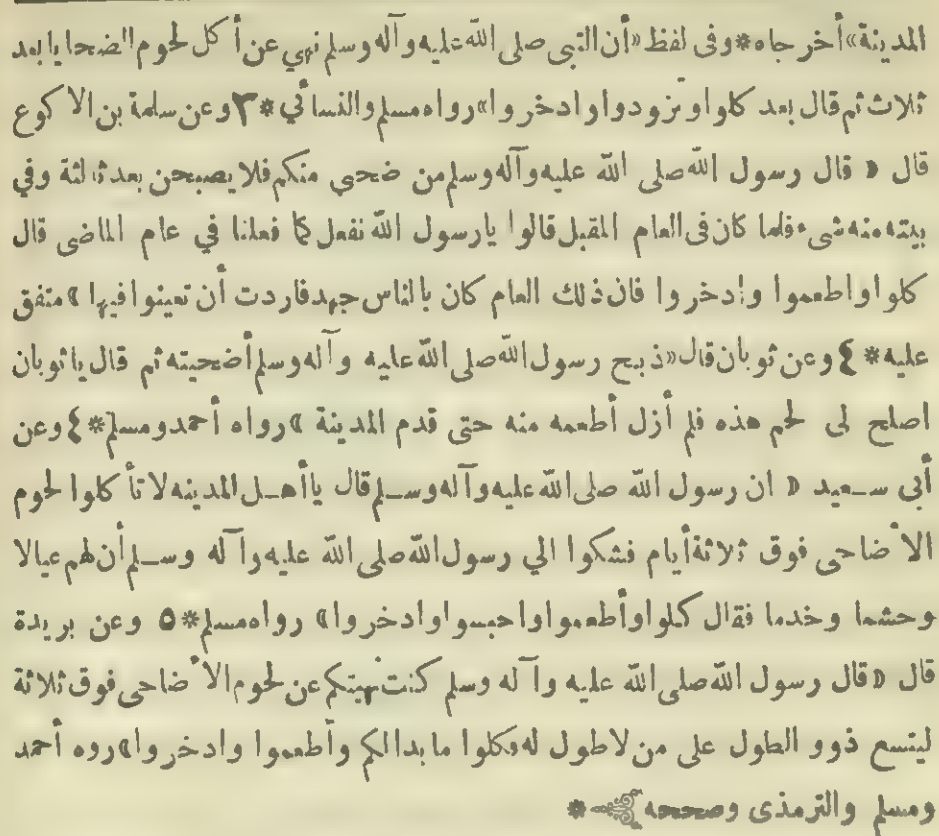 المدينة» أخرجاه * وفى لفظ «أن النبى صلى الله عليه وآله وسلم نهي عن أكل لحوم الضحايا بعد
ثلاث ثم قال بعد كلوا وتزودوا وادخروا» رواه مسلم والنسائي * ٣ وعن سلمة بن الاكوع
قال « قال رسول الله صلى الله عليه وآله وسلم من ضحى منكم فلا يصبحن بعد ثالثة وفي
بيته منه شىء فلما كان فى العام المقبل قالوا يارسول الله نفعل كما فعلنا في عام الماضى قال
كلوا واطعموا وادخروا فان ذلك العام كان بالناس جهد فاردت أن تعينوا فيها » متفق
عليه * ٤ وعن ثوبان قال «ذبح رسول الله صلى الله عليه وآله وسلم أضحيته ثم قال ياثوبان
اصلح لى لحم هذه فلم أزل أطعمه منه حتى قدم المدينة » رواه أحمد ومسلم * ٤ وعن
أبى سعيد « ان رسول الله صلى الله عليه وآله وسلم قال ياأهل المدينه لا تأكلوا لحوم
الأضاحى فوق ثلاثة أيام فشكوا الي رسول الله صلى الله عليه وآله وسلم أن لهم عيالا
وحشما وخدما فقال كلوا وأطعموا واحبسوا وادخروا» رواه مسلم * ٥ وعن بريدة
قال «قال رسول الله صلى الله عليه وآله وسلم كنت نهيتكم عن لحوم الأضاحى فوق ثلاثة
ليتسع ذوو الطول على من لاطول له فكلوا ما بدالكم وأطعموا وادخروا» روه أحمد
ومسلم والترمذى وصححه *